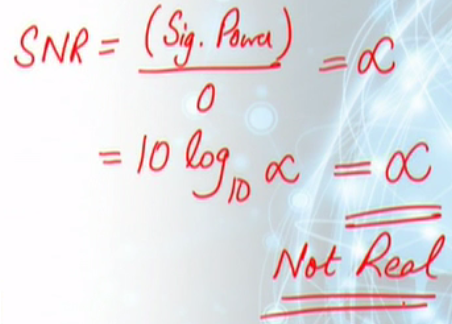 SNR = (Sig. Power) / 0 = ∝
= 10 log₁₀ ∝ = ∝
Not Real